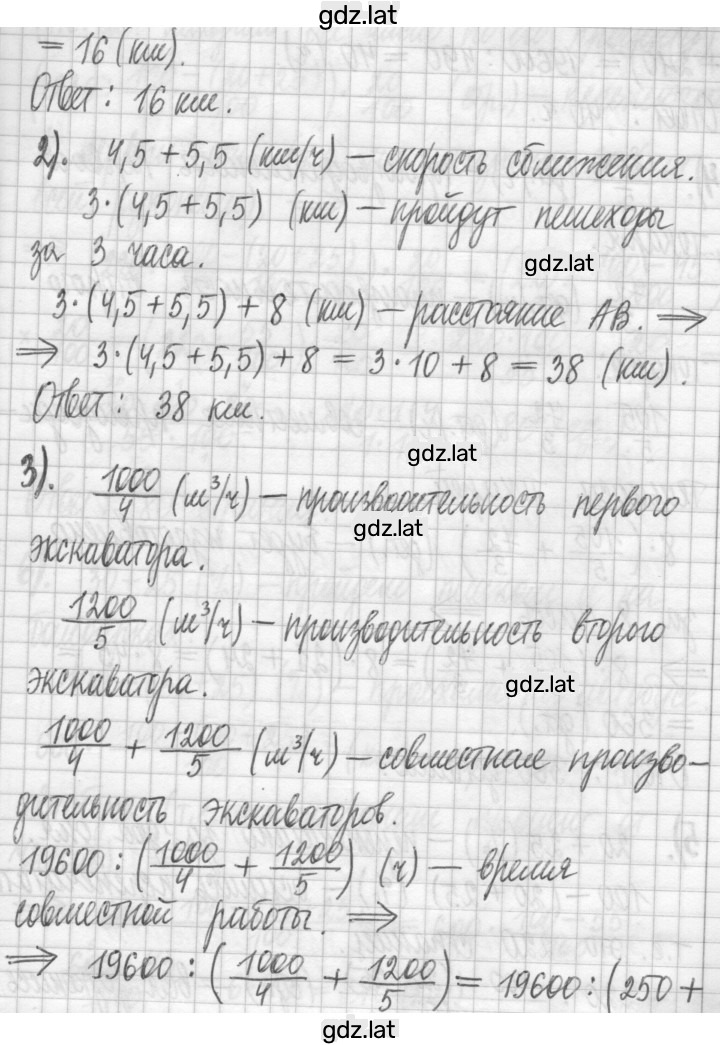 gdz.lat
= 16 (км).
Ответ: 16 км.
2). 4,5 + 5,5 (км/ч) — скорость сближения.
3·(4,5+5,5) (км) — пройдут пешеходы
за 3 часа.
gdz.lat
3·(4,5+5,5) + 8 (км) — расстояние АВ. ⟹
⟹ 3·(4,5+5,5)+8 = 3·10 + 8 = 38 (км).
Ответ: 38 км.
gdz.lat
3). 1000/4 (м³/ч) — производительность первого
gdz.lat
экскаватора.
1200/5 (м³/ч) — производительность второго
экскаватора.
gdz.lat
1000/4 + 1200/5 (м³/ч) — совместная произво-
дительность экскаваторов.
19600 : (1000/4 + 1200/5) (ч) — время
совместной работы. ⟹
⟹ 19600 : (1000/4 + 1200/5) = 19600 : (250 +
gdz.lat